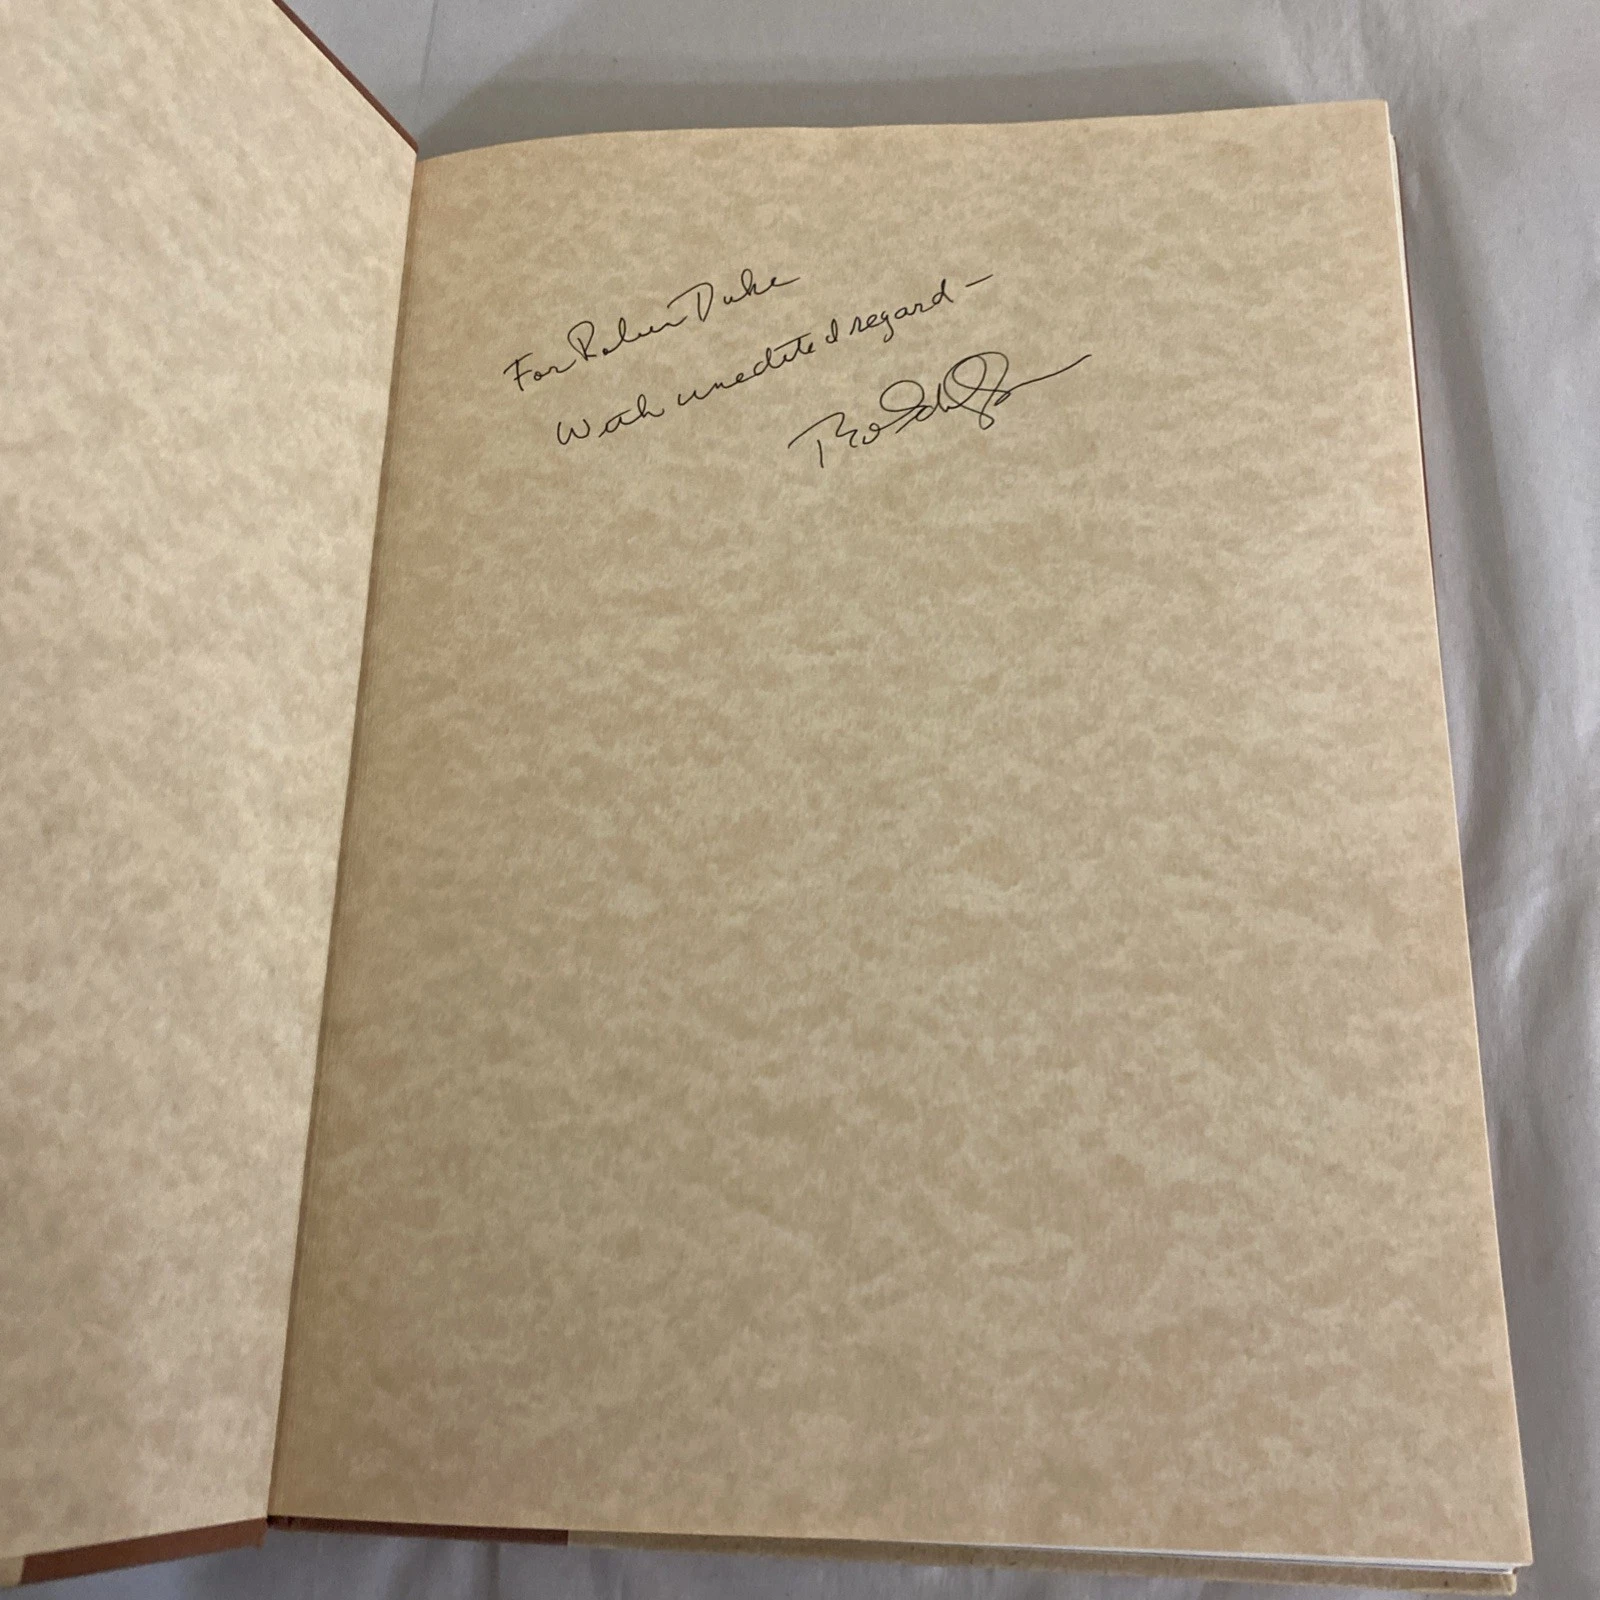 For Robin Duke
With unedited regard –